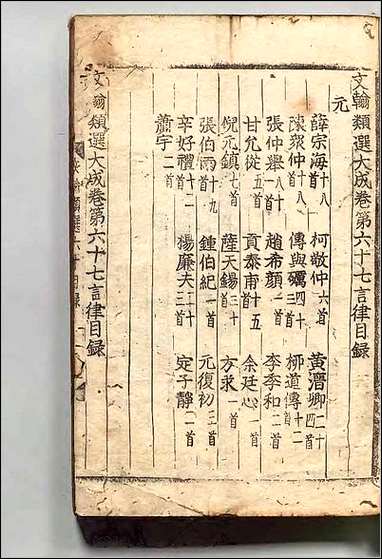 文翰類選大成卷第六十七言律目録
元
薛宗海十八首 柯敬仲六首 黃溍卿二十一首
陳衆仲十八首 傅與礪四十三首 柳道傳十二首
張仲舉八十首 趙希顔一首 李季和二首
甘允從五首 貢泰甫十五首 余廷心一首
倪元鎮七首 薩天錫三十首 方求一首
張伯雨十九首 鍾伯紀一首 元復初三首
辛好禮十二首 楊廉夫二十首 定子靜一首
蕭宇二首
文翰類選大成卷第六十七言律目録